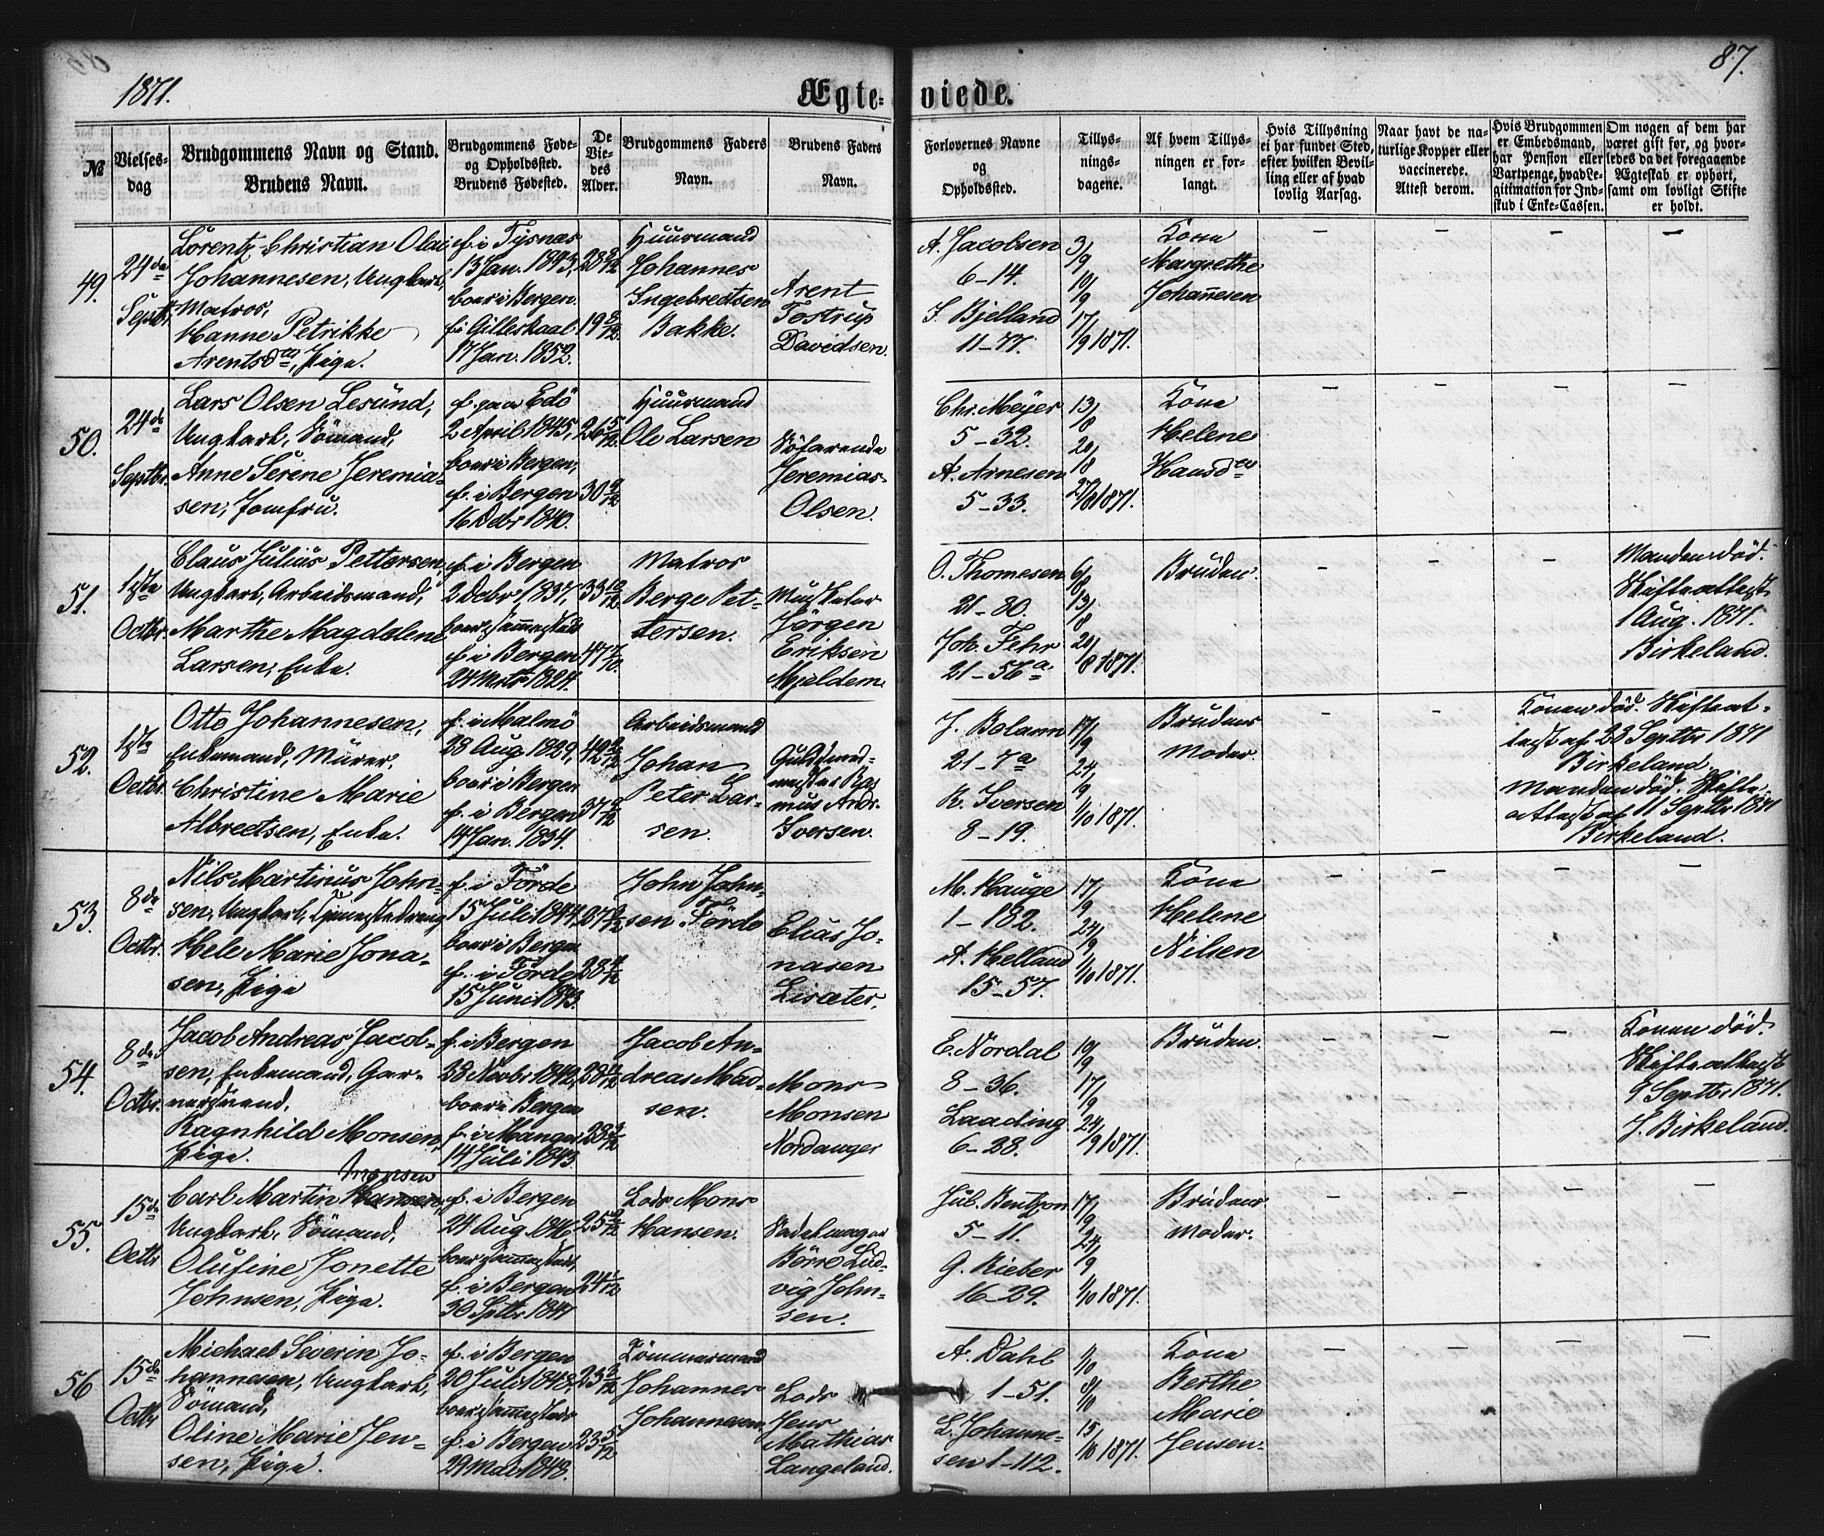 1871.
87.
Ægte-viede.
№
Vielses-
dag
Brudgommens Navn og Stand.
Brudens Navn.
Brudgommens Føde-
og Opholdssted.
Brudens Fødested.
De
Vie-
des
Alder.
Brudgommens Faders
Navn.
Brudens Faders
Navn.
Forlovernes Navne
og
Opholdssted.
Tillys-
nings-
dagene.
Af hvem Tillys-
ningen er for-
langt.
Hvis Tillysning
ei har fundet Sted,
efter hvilken Bevil-
ling eller af hvad
lovlig Aarsag.
Naar havt de na-
turlige Kopper eller
vaccinerede.
Attest derom.
Hvis Brudgommen
er Embedsmand,
har Pension eller
Vartpenge, hvad Le-
gitimation for Ind-
skud i Enke-Cassen.
Om nogen af dem har
været gift før, og hvor-
ledes da det foregaaende
Ægteskab er ophørt,
samt om lovligt Skifte
er holdt.
49.
24de
Septbr.
Lorentz Christian Olai
Johannesen, Ungkarl,
Matros,
Hanne Petrikke
Arentsdtr, Pige.
f. i Tysnæs
13 Jan. 1843,
boer i Bergen.
f. i Gilleskaal
17 Jan. 1852.
28 8/12
19 8/12
Huusmand
Johannes
Ingebretsen
Bakke.
Arent
Tostrup
Davidsen.
A. Jacobsen
6-14.
S. Bjelland
11-77.
3/9
10/9
17/9 1871.
Kona
Margrethe
Johannesen
50.
24de
Septbr.
Lars Olsen Lesund,
Ungkarl, Sømand,
Anne Serine Jeremia-
sen, Jomfru.
f. paa Edö
2 April 1845,
boer i Bergen,
f. i Bergen
16 Decbr 1840.
26 5/12
30 9/12
Huusmand
Ole Larsen
Söfarende
Jeremias
Olsen.
Chr. Meyer
5-32.
A. Arnesen
5-33.
13/8
20/8
27/8 1871.
Kona
Helene
Hansdtr
51.
1ste
Octbr.
Claus Julius Pettersen,
Ungkarl, Arbeidsmand,
Marthe Magdalene
Larsen, Enke.
f. i Bergen
2 Decbr. 1837,
boer sammesteds
f. i Bergen
24 Marts 1824.
33 10/12
47
Matros
Berge Pet-
tersen.
Jørgen
Eriksen
Mjeldem
O. Thomesen
21-80.
Joh. Fehr
21-56a
6/8
13/8
20/8 1871.
Bruden.
Manden død.
Skifteattest
1 Aug. 1871.
Birkeland.
52.
1ste
Octbr.
Otto Johannesen,
Enkemand, Murer,
Christine Marie
Albrectsen, Enke.
f. i Malmö
28 Aug. 1829,
boer i Bergen
f. i Bergen
14 Jan. 1834.
42
37 8/12
Arbeidsmand
Johan
Peter Lar-
sen.
Guldsmed-
mester Ras
mus Andr.
Iversen.
J. Bolann
21-7a
R. Iversen
8-19.
17/9
24/9
1/10 1871.
Brudens
Moder.
Konen død. Skifteat-
test af 23 Septbr 1871
Birkeland.
Manden død. Skifte-
attest af 11 Septbr. 1871
Birkeland.
53.
8de
Octbr.
Nils Martinus John-
sen, Ungkarl, Tjenestedreng
Hele Marie Jona-
sen, Pige
f. i Förde
15 Juli 1844.
boer i Bergen
f. i Förde
15 Juni 1843.
27
28
John John-
sen Förde
Elias Jo-
nasen
Lisæter.
M. Hauge
1-182.
A. Helland
15-57.
17/9
24/9
1/10 1871.
Kona
Helene
Nilsen
54.
8de
Octbr.
Jacob Andreas Jacob-
sen, Enkemand, Gar-
Ragnhild Monsen,
Pige.
f. i Bergen
28 Novbr. 1842,
boer i Bergen
f. i Manger
14 Juli 1843.
28
28
Jacob An-
dreas Mad-
sen.
Mons
Monsen
Nordanger
E. Nordal
8-36.
Laading
6-28.
10/9
17/9
24/9 1871.
Bruden.
Konen død.
Skifteattest
9 Septbr. 1871.
J. Birkeland.
55.
15de
Octbr
Monsen
Carl Martin Hansen,
Ungkarl, Sømand,
Olufine Jonette
Johnsen, Pige.
f. i Bergen
24 Aug. 1846
boer sammesteds,
f. i Bergen
30 Septbr 1847
25
24 1/12
Lods Mons
Hansen.
Sadelmager
Börre Lud-
vig John-
sen.
Jul. Bentzon
5-11.
G. Rieber
16-29.
17/9
24/9
1/10 1871.
Brudens
Moder.
56
15de
Octbr
Michael Severin Jo-
hannesen, Ungkarl,
Sømand,
Oline Marie Jen-
sen, Pige.
f. i Bergen
20 Juli 1848.
boer sammesteds
f. i Bergen
29 Mai 1848.
23
23 5/12
Tömmermand
Johannes
Johannesen
Lods
Jens
Mathias
Langeland.
A. Dahl
1-51.
L. Johanne-
sen 1-112.
1/10
8/10
15/10 1871.
Kona
Berthe
Marie
Jensen.